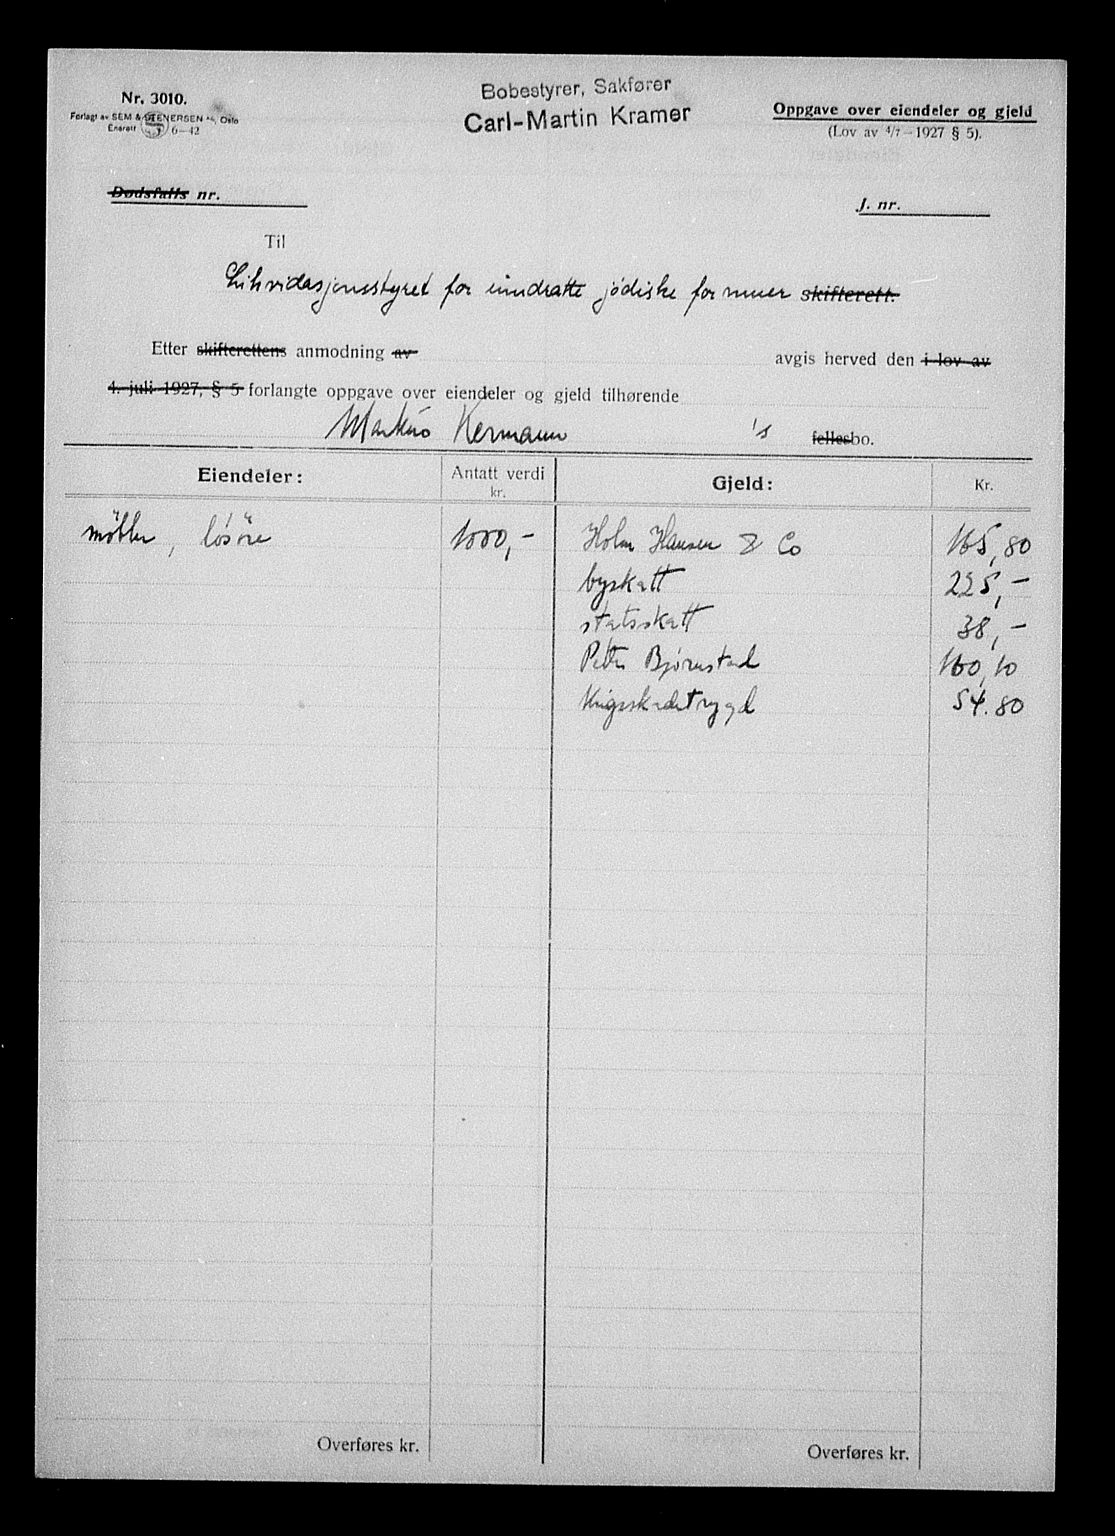 Nr. 3010.
Forlagt av SEM & STENERSEN A/S, Oslo
Enerett 6-42
Bobestyrer, Sakfører
Carl-Martin Kramer
Oppgave over eiendeler og gjeld
(Lov av 4/7-1927 § 5).
Dødsfalls nr.
J. nr.
Til
Likvidasjonsstyret for inndratte jödiske formuer skifterett.
Etter skifterettens anmodning av avgis herved den i lov av
4. juli 1927, § 5 forlangte oppgave over eiendeler og gjeld tilhørende
Markus Kermann 's fellesbo.
Eiendeler: Antatt verdi kr. Gjeld: Kr.
möbler, lösöre 1000,- Holm Hansen & Co 165,80
byskatt 225,-
statsskatt 38,-
Petter Bjørnstad 160,10
Krigsskadetrygd 54.80
Overføres kr. Overføres kr.